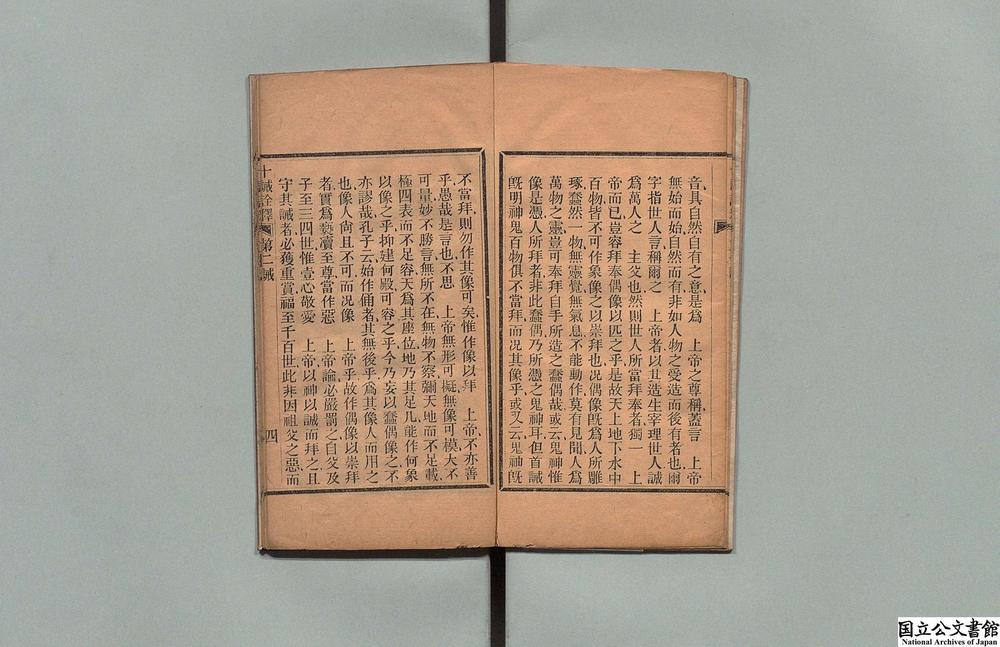 音、其自然自有之意、是爲　上帝之尊稱、蓋言　上帝
無始而始、自然而有、非如人物之受造而後有者也、爾
字指世人言、稱爾之　上帝者、以其造生宰理世人、誠
爲萬人之　主父也、然則世人所當拜奉者、獨一　上
帝而已、豈容拜奉偶像以匹之乎、是故天上地下水中
百物皆不可作像、像之以崇拜也、况偶像旣爲人所雕
琢、蠢然一物、無靈覺、無氣息、不能動作、莫有見聞、人爲
萬物之靈、豈可奉拜自手所造之蠢偶哉、或云、鬼神惟
像是憑、人所拜者、非此蠢偶、乃所憑之鬼神耳、但首誡
旣明神鬼百物俱不當拜、而况其像乎、或又云、鬼神旣
不當拜、則勿作其像可矣、惟作像以拜　上帝、不亦善
乎、愚哉是言也、不思　上帝無形可擬、無像可模、大不
可量、妙不勝言、無所不在、無物不察、彌天地而不足載、
極四表而不足容、天爲其座位、地乃其足几、能作何象
以像之乎、抑建何殿可容之乎、今乃妄以蠢偶像之、不
亦謬哉、孔子云、始作俑者、其無後乎、爲其像人而用之
也、像人尙且不可、而况像　上帝乎、故作偶像以崇拜
者、實爲褻瀆至尊、當作惡　上帝諭必嚴罰之、自父及
子、至三四世、惟壹心敬愛　上帝、以神以誠而拜之、且
守其誡者、必獲重賞、福至千百世、此非因祖父之惡、而
十誡詮釋　第二誡
四
国立公文書館
National Archives of Japan